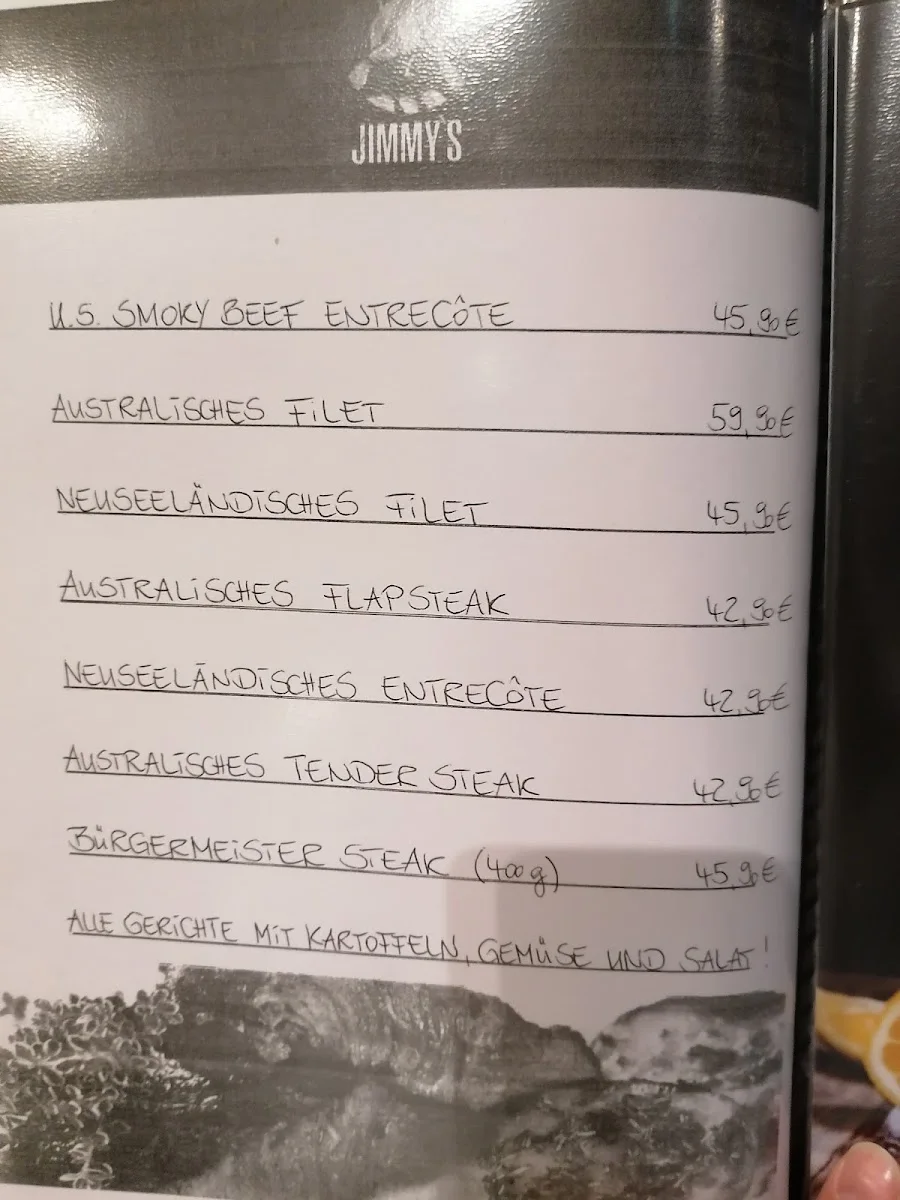 JIMMY'S
U.S. SMOKY BEEF ENTRECÔTE 45,90€
AUSTRALISCHES FILET 59,90€
NEUSEELÄNDISCHES FILET 45,90€
AUSTRALISCHES FLAPSTEAK 42,90€
NEUSEELÄNDISCHES ENTRECÔTE 42,90€
AUSTRALISCHES TENDER STEAK 42,90€
BÜRGERMEISTER STEAK (400g) 45,90€
ALLE GERICHTE MIT KARTOFFELN, GEMÜSE UND SALAT!